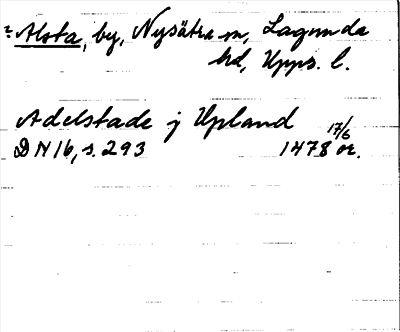 ? Alsta, by, Nysätra sn, Lagunda
hd, Upps. l.
Adelstade j Upland
DN 16, s. 293 1478 17/6 or.